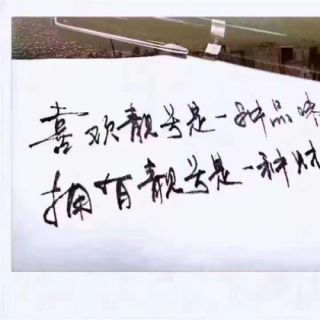 喜欢靓号是一种品味
拥有靓号是一种财